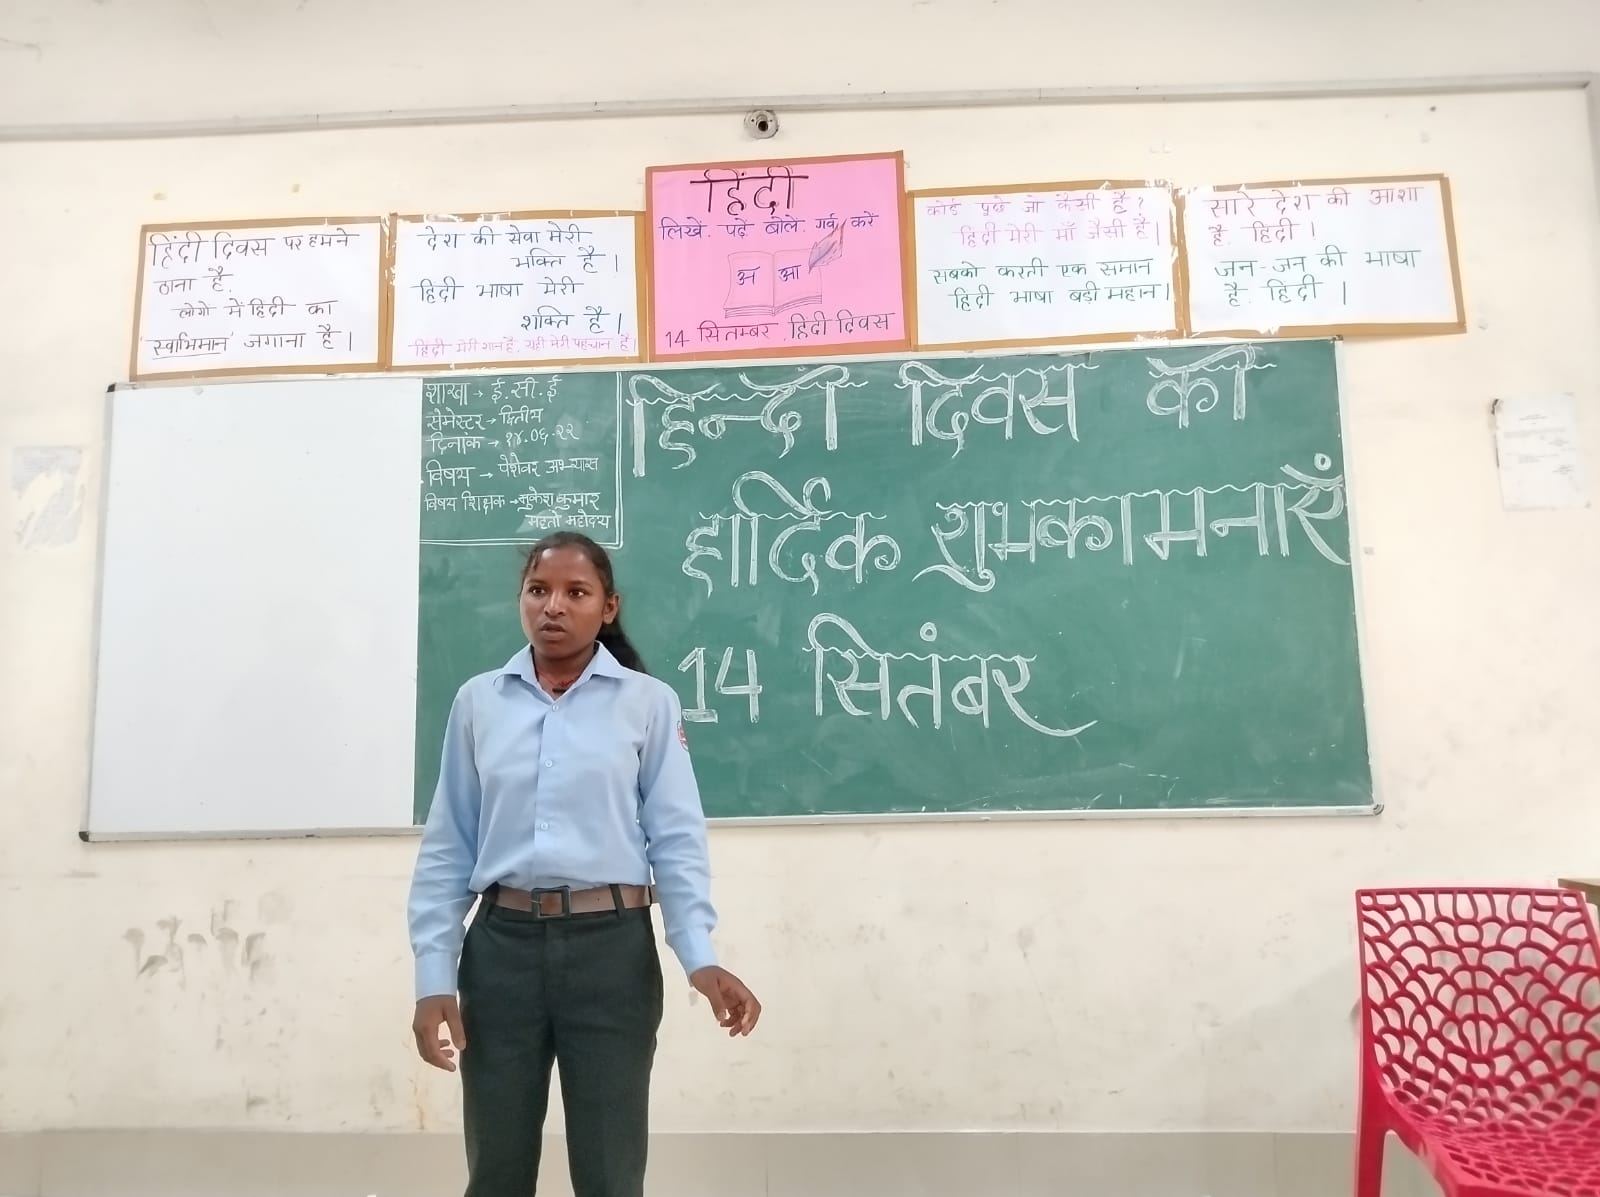 हिंदी दिवस पर हमने
ठाना है.
लोगो में हिंदी का
'स्वाभिमान' जगाना है।
देश की सेवा मेरी
भक्ति है।
हिंदी भाषा मेरी
शक्ति है।
हिंदी मेरी शान है, यही मेरी पहचान है।
हिंदी
लिखें. पढ़ें बोले. गर्व करें
अ आ
14 सितम्बर . हिंदी दिवस
कोई पूछे जो कैसी है?
हिंदी मेरी माँ जैसी है।
सबको करती एक समान
हिंदी भाषा बड़ी महान।
सारे देश की आशा
है. हिंदी।
जन-जन की भाषा
है. हिंदी।
शाखा → ई.सी.ई
सैमेस्टर → द्वितीय
दिनाक → १४.०६.२२
विषय → पेशेवर अभ्यास
विषय शिक्षक → मुकेश कुमार
महतो महोदय
हिन्दी दिवस की
हार्दिक शुभकामनाएँ
14 सितंबर